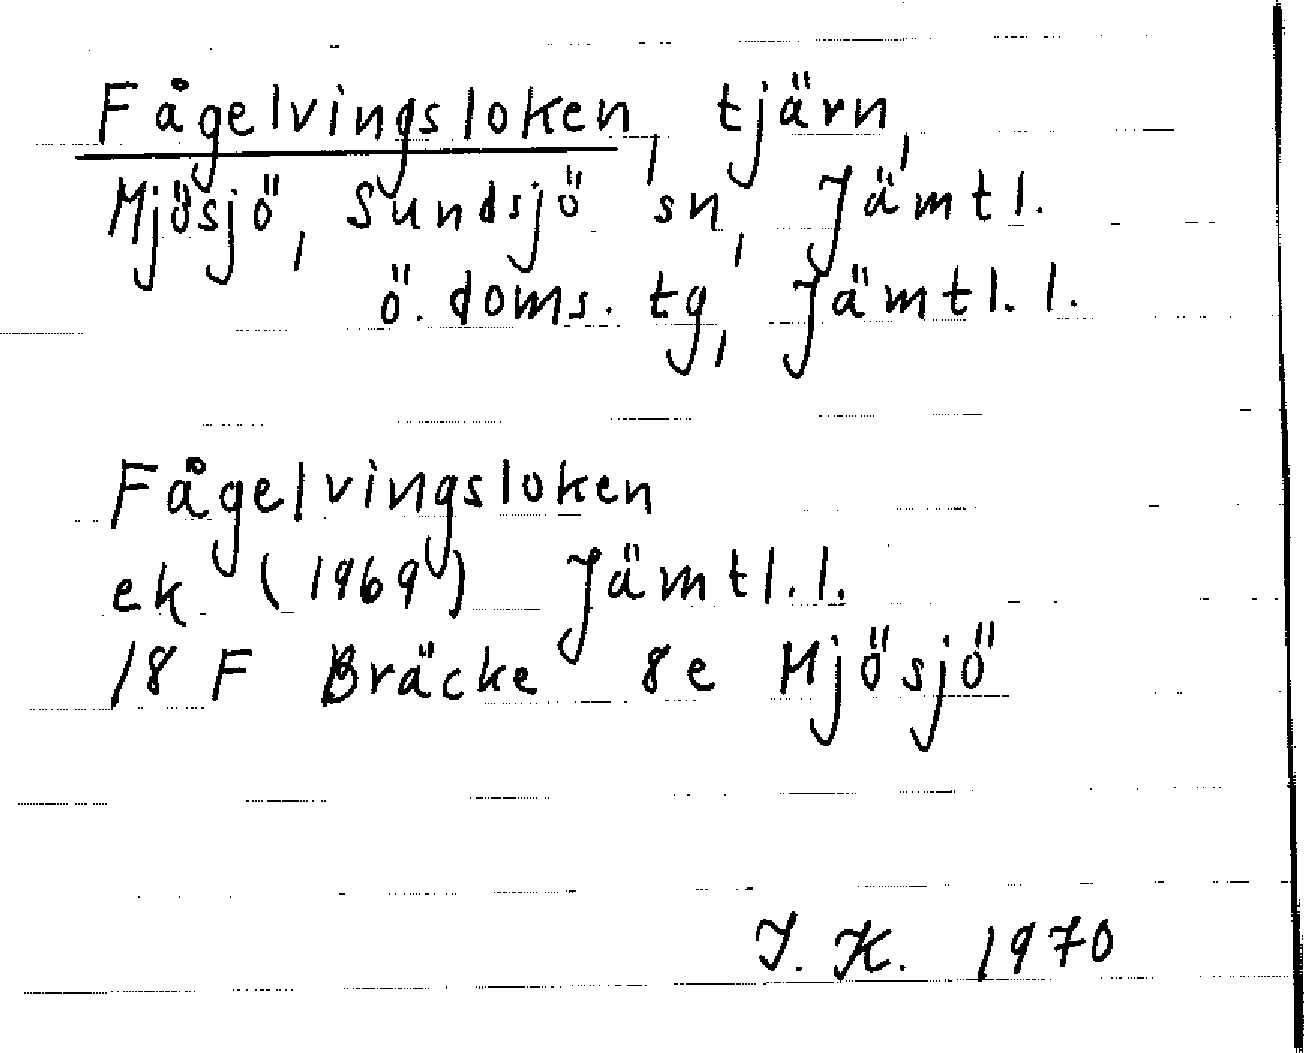 Fågelvingsloken, tjärn,
Mjösjö, Sundsjö sn, Jämtl.
ö. doms. tg, Jämtl. l.
Fågelvingsloken
ek (1969) Jämtl. l.
18 F Bräcke 8e Mjösjö
I. K. 1970